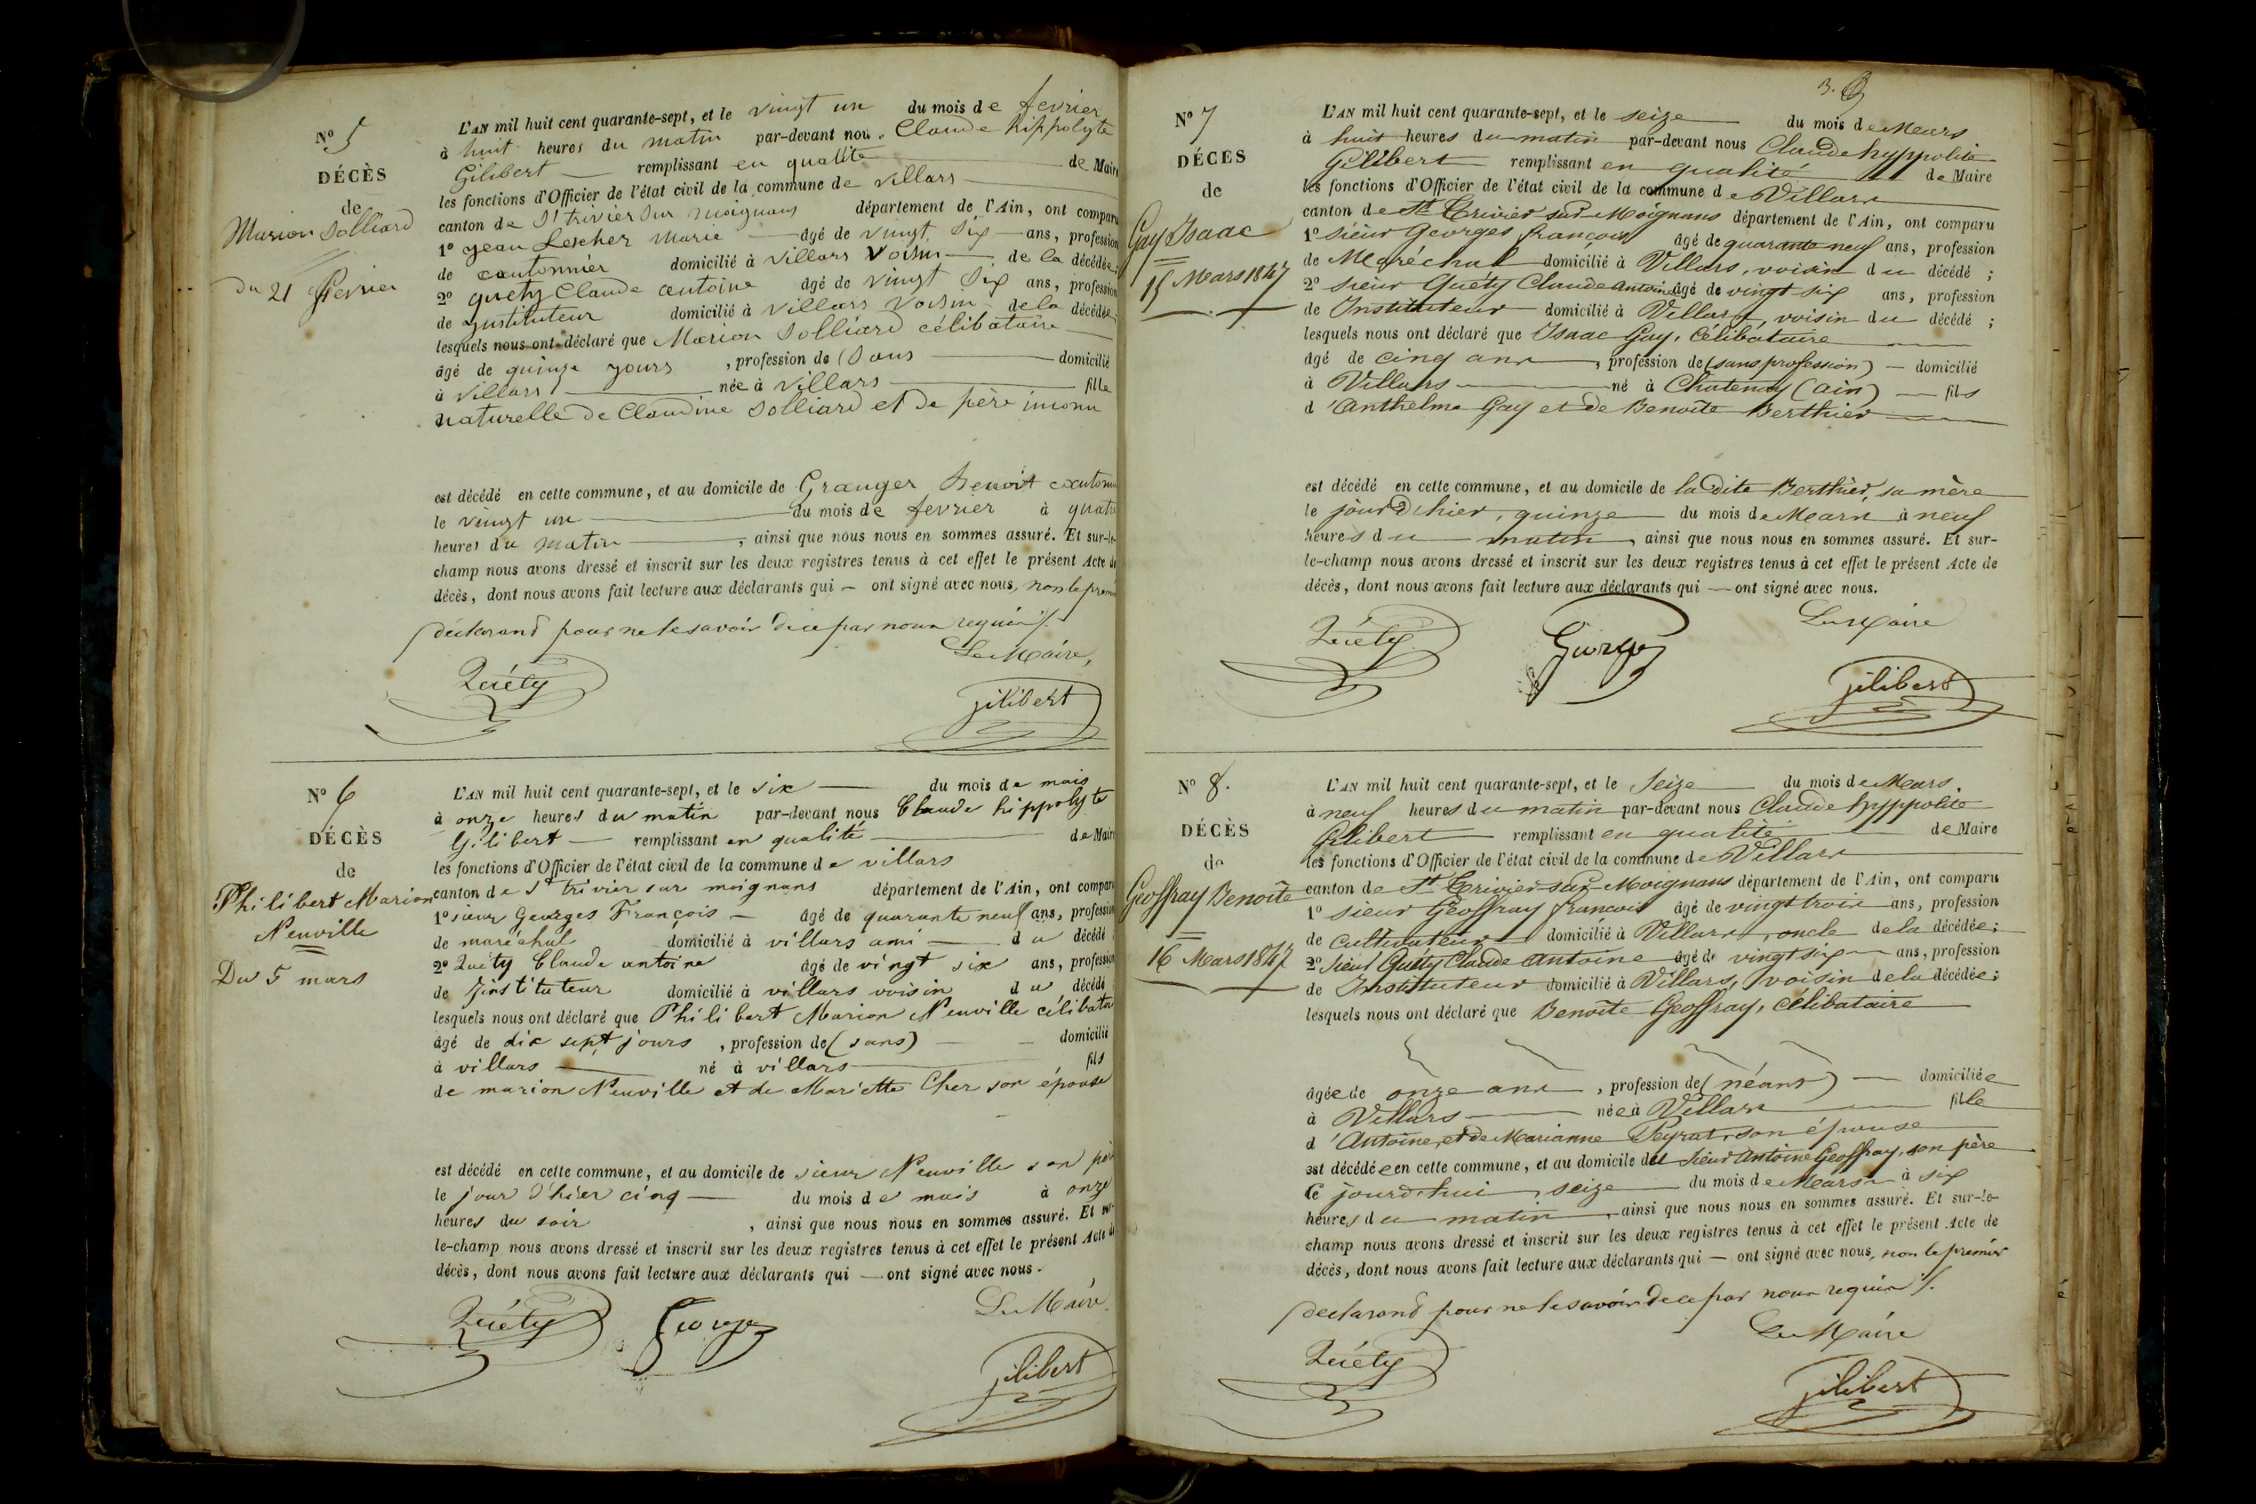 Nº 5
DÉCÈS
de
Marion Solliard
Du 21 fevrier
L'AN mil huit cent quarante-sept, et le vingt un du mois de fevrier
à huit heures du matin par-devant nou. Claude hippolyte
Gilibert remplissant en qualité de Maire
les fonctions d'Officier de l'état civil de la commune de villars
canton de St trivier sur moignans département de l'Ain, ont comparu
1º jean Lescher Marie âgé de vingt six ans, profession
de cantonnier domicilié à villars voisin de la décédée;
2º quety Claude antoine âgé de vingt six ans, profession
de instituteur domicilié à villars voisin de la décédée;
lesquels nous ont déclaré que Marion Solliard célibataire
âgé de quinze yours , profession de (Sans domicilié
à villars née à villars fille
naturelle de Claudine Solliard et de père inconu
est décédé en cette commune, et au domicile de Granger Benoit cantonn
le vingt un du mois de fevrier à quatre
heures du matin , ainsi que nous nous en sommes assuré. Et sur-le-
champ nous avons dressé et inscrit sur les deux registres tenus à cet effet le présent Acte de
décès, dont nous avons fait lecture aux déclarants qui — ont signé avec nous, non le premi
déclarand pour ne le savoir de ce par nous requis ./.
Le Maire,
Quéty
Gilibert
Nº 6
DÉCÈS
de
Philibert Marion
Neuville
Du 5 mars
L'AN mil huit cent quarante-sept, et le six du mois de mars
à onze heures du matin par-devant nous Claude hippolyte
Gilibert remplissant en qualité de Maire
les fonctions d'Officier de l'état civil de la commune de villars
canton de St trivier sur moignans département de l'Ain, ont comparu
1º sieur Georges François âgé de quarante neuf ans, profession
de maréchal domicilié à villars ami du décédé
2º Quéty Claude antoine âgé de vingt six ans, profession
de Jinstituteur domicilié à villars voisin du décédé
lesquels nous ont déclaré que Philibert Marion Neuville célibata
âgé de dix sept jours , profession de (sans) domicilié
à villars né à villars fils
de marion Neuville et de Mariette Cher son épouse
est décédé en cette commune, et au domicile de sieur Neuville son père
le jour d'hier cinq du mois de mars à onze
heures du soir , ainsi que nous nous en sommes assuré. Et sur-
le-champ nous avons dressé et inscrit sur les deux registres tenus à cet effet le présent Acte de
décès, dont nous avons fait lecture aux déclarants qui — ont signé avec nous.
Le Maire.
Quéty
George
Gilibert
3.
Nº 7
DÉCÈS
de
Gay Isaac
15 Mars 1847
L'AN mil huit cent quarante-sept, et le seize du mois de Mars
à huit heures du matin par-devant nous Claude hyppolite
Gilibert remplissant en qualité de Maire
les fonctions d'Officier de l'état civil de la commune de Villars
canton de St Trivier sur Moignans département de l'Ain, ont comparu
1º sieur Georges françois âgé de quarante neuf ans, profession
de Maréchal domicilié à Villars, voisin du décédé ;
2º sieur Quéty Claude Antoine âgé de vingt six ans, profession
de Instituteur domicilié à Villars, voisin du décédé ;
lesquels nous ont déclaré que Isaac Gay, Célibataire
âgé de cinq ans , profession de (sans profession) — domicilié
à Villars né à Chatenay (ain) — fils
d'Anthelme Gay et de Benoîte Berthier
est décédé en cette commune, et au domicile de la dite Berthier, sa mère
le jour d'hier, quinze du mois de Mars à neuf
heures du matin , ainsi que nous nous en sommes assuré. Et sur-
le-champ nous avons dressé et inscrit sur les deux registres tenus à cet effet le présent Acte de
décès, dont nous avons fait lecture aux déclarants qui — ont signé avec nous.
Le Maire
Quéty
George
Gilibert
Nº 8.
DÉCÈS
de
Geoffray Benoîte
16 Mars 1847
L'AN mil huit cent quarante-sept, et le Seize du mois de Mars
à neuf heures du matin par-devant nous Claude hyppolite
Gilibert remplissant en qualité de Maire
les fonctions d'Officier de l'état civil de la commune de Villars
canton de St Trivier sur Moignans département de l'Ain, ont comparu
1º sieur Geoffray françois âgé de vingt trois ans, profession
de Cultivateur domicilié à Villars, oncle de la décédée;
2º sieur Quéty Claude Antoine âgé de vingt six ans, profession
de Instituteur domicilié à Villars, voisin de la décédée;
lesquels nous ont déclaré que Benoîte Geoffray, célibataire
âgée de onze ans , profession de (néant) — domiciliée
à Villars née à Villars fille
d'Antoine, et de Marianne Peyrat, son épouse
est décédée en cette commune, et au domicile del sieur Antoine Geoffray, son père
Ce jourd'hui, seize du mois de Mars à six
heures du matin , ainsi que nous nous en sommes assuré. Et sur-le-
champ nous avons dressé et inscrit sur les deux registres tenus à cet effet le présent Acte de
décès, dont nous avons fait lecture aux déclarants qui — ont signé avec nous, non le premier
déclarand pour ne le savoir de ce par nous requis ./.
Le Maire
Quéty
Gilibert